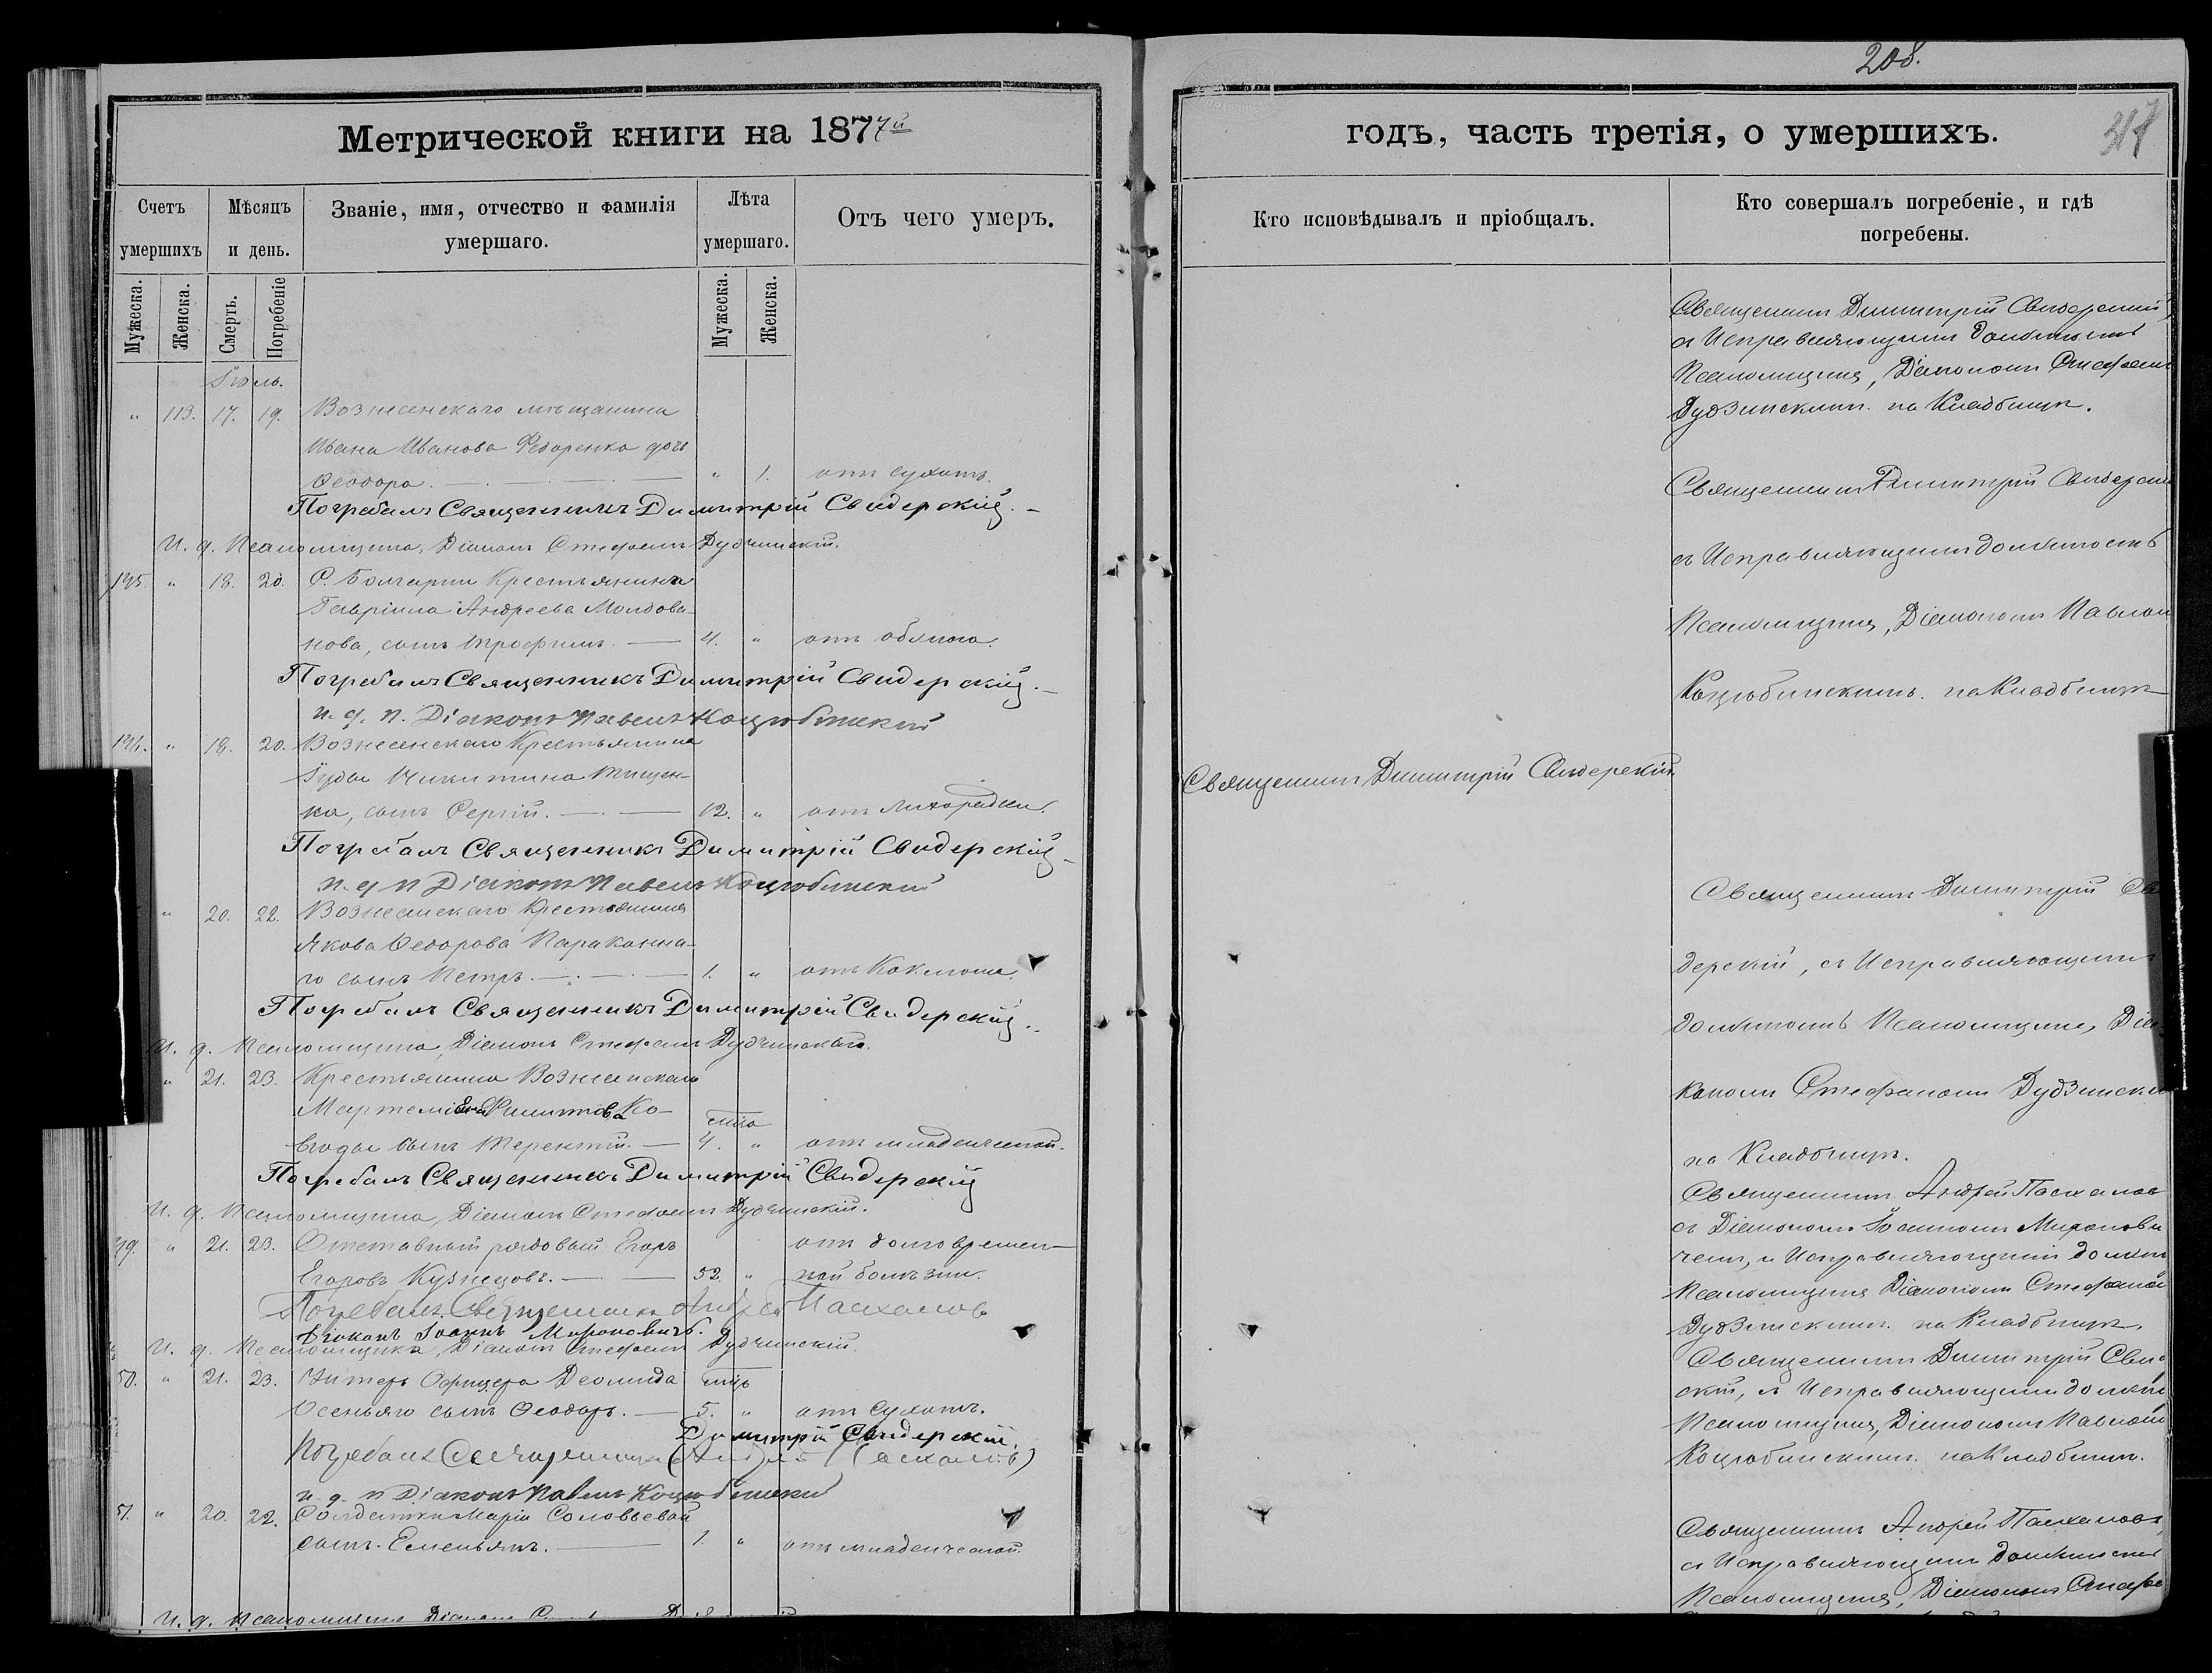 208.
Метрической книги на 1877й
годъ, часть третія, о умершихъ.
Счетъ умершихъ
Мѣсяцъ и день.
Званіе, имя, отчество и фамилія умершаго.
Лѣта умершаго.
Отъ чего умеръ.
Кто исповѣдывалъ и пріобщалъ.
Кто совершалъ погребеніе, и гдѣ погребены.
Мужеска.
Женска.
Смерть.
Погребеніе
Мужеска.
Женска.
Іюль.
" 113. 17. 19. Вознесенскаго мѣщанина
Ивана Иванова Федоренко дочь
Ѳеодора. " 1. отъ сухотъ.
Погребалъ Священникъ Димитрій Свидерскій.
И. д. Псаломщика, Діаконъ Стефанъ Дудзинскій.
Священникъ Димитрій Свидерскій,
съ Исправляющимъ должность
Псаломщика, Діакономъ Стефаномъ
Дудзинскимъ. на Кладбищѣ.
195 " 18. 20. С. Болгарки Крестьянина
Гавріила Андреева Молдова-
нова, сынъ Трофимъ. 4. " отъ обжога.
Погребалъ Священникъ Димитрій Свидерскій.
и. д. п. Діаконъ Павелъ Коцюбинский
Священникъ Димитрій Свидерскій
съ Исправляющимъ должность
Псаломщика, Діакономъ Павломъ
Коцюбинскимъ. на Кладбищѣ
196. " 18. 20. Вознесенскаго Крестьянина
Іуды Никитина Тищен-
ка, сынъ Сергій. 12. " отъ лихорадки.
Погребалъ Священникъ Димитрій Свидерскій
и. д п Діаконъ Павелъ Коцюбинский
Священникъ Димитрій Свидерскій
" 20. 22. Вознесенскаго Крестьянина
Якова Ѳедорова Параконна-
го сынъ Петръ. 1. " отъ Коклюша
Погребалъ Священникъ Димитрій Свидерскій.
И. д. Псаломщика, Діаконъ Стефанъ Дудзинскій.
Священникъ Димитрій Сви
дерскій, съ Исправляющимъ
должность Псаломщика, Діа
кономъ Стефаномъ Дудзинским
на Кладбищѣ.
" 21. 23. Крестьянина Вознесенскаго
сынъ Терентій. 4. " отъ младенческой.
Погребалъ Священникъ Димитрій Свидерскій
И. д. Псаломщика, Діаконъ Стефанъ Дудзинскій.
" 21. 23. Отставный рядовый Егоръ
Егоровъ Кузнецовъ. 52. " отъ долговремен-
ной болѣзни.
Погребалъ Священникъ Андрей Пасхаловъ
Діаконъ Іоаннъ Мироновичъ.
И. д. Псаломщика, Діаконъ Стефанъ Дудзинскій.
Священникъ Андрей Пасхаловъ
съ Діакономъ Іоанномъ Миронови
чемъ, и Исправляющій должн
Псаломщика Діакономъ Стефаном
Дудзинскимъ. на Кладбищѣ.
50. " 21. 23. Унтеръ Офицера
сынъ Ѳеодоръ. 5. " отъ Сухотъ.
Димитрій Свидерскій.
Погребалъ Священникъ (Андрей Пасхаловъ)
и. д. п Діаконъ Павелъ Коцюбинский
Священникъ Димитрій Сви
скій, съ Исправляющимъ должн
Псаломщика, Діакономъ Павломъ
Коцюбинскимъ. на Кладбищѣ.
51. " 20. 22. Солдатки Маріи Соловьевой
сынъ Емельянъ. 1. " отъ младенческой.
Священникъ Андрей Пасхаловъ,
съ Исправляющимъ должность
Псаломщика, Діакономъ Стефа
И. д. Псаломщика Діаконъ